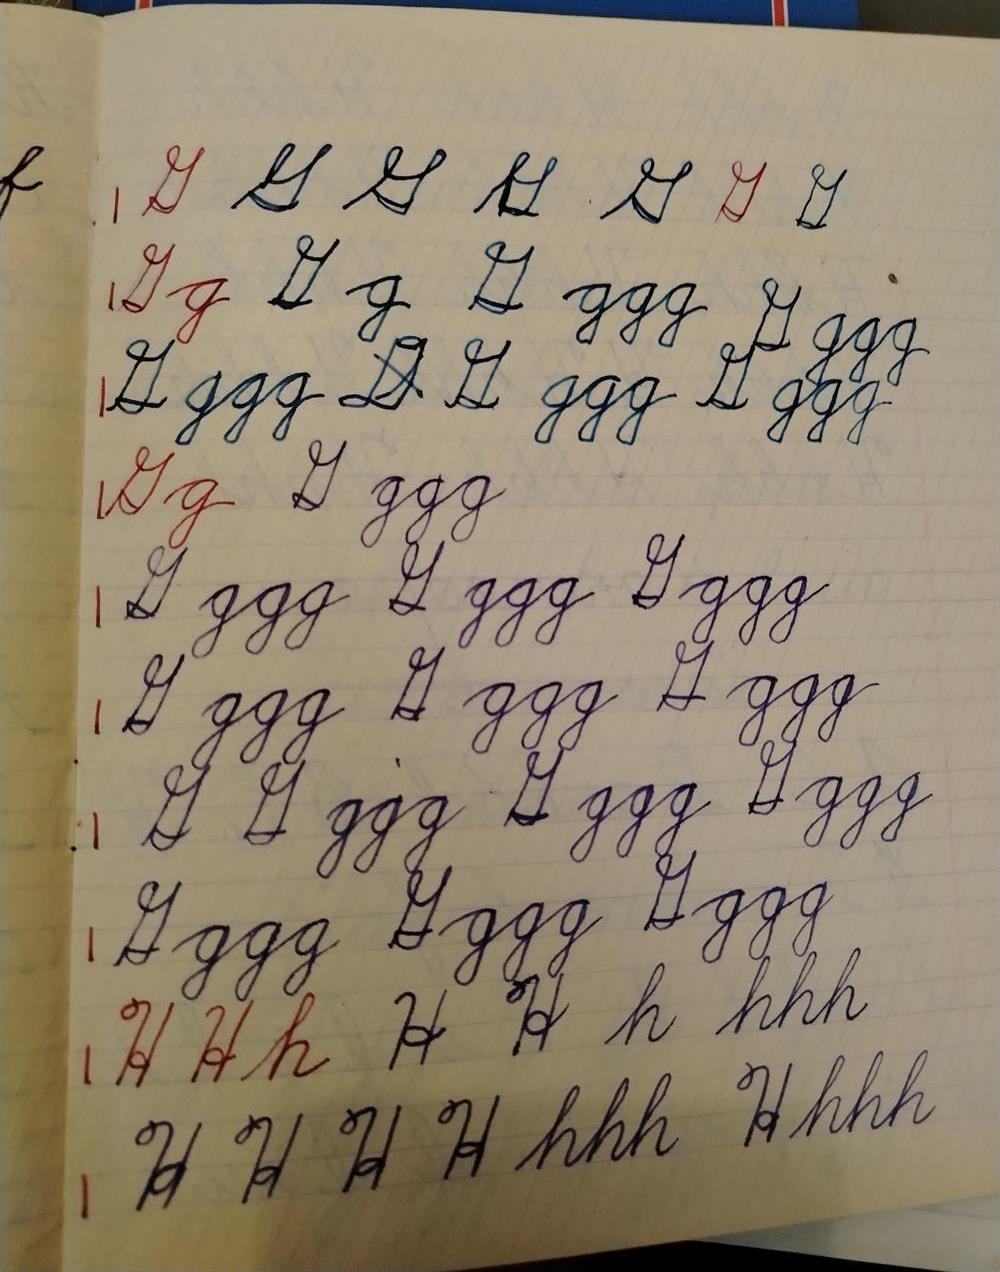 f
G G G G G G G
G g G g G ggg G ggg
G ggg G G ggg G ggg
G g G ggg
G ggg G ggg G ggg
G ggg G ggg G ggg
G G ggg G ggg G ggg
G ggg G ggg G ggg
H H h H H h hhh
H H H H hhh H hhh